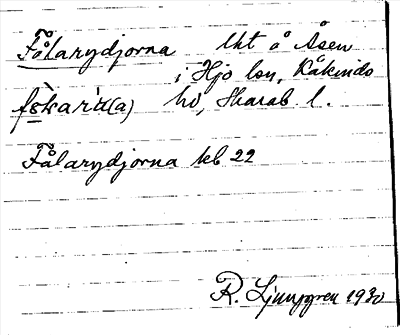 Fålarydjorna lht å Åsen
i Hjo lsn, Kåkinds
hd, Skarab. l.
Fålarydjorna kbl 22
R. Ljunggren 1930